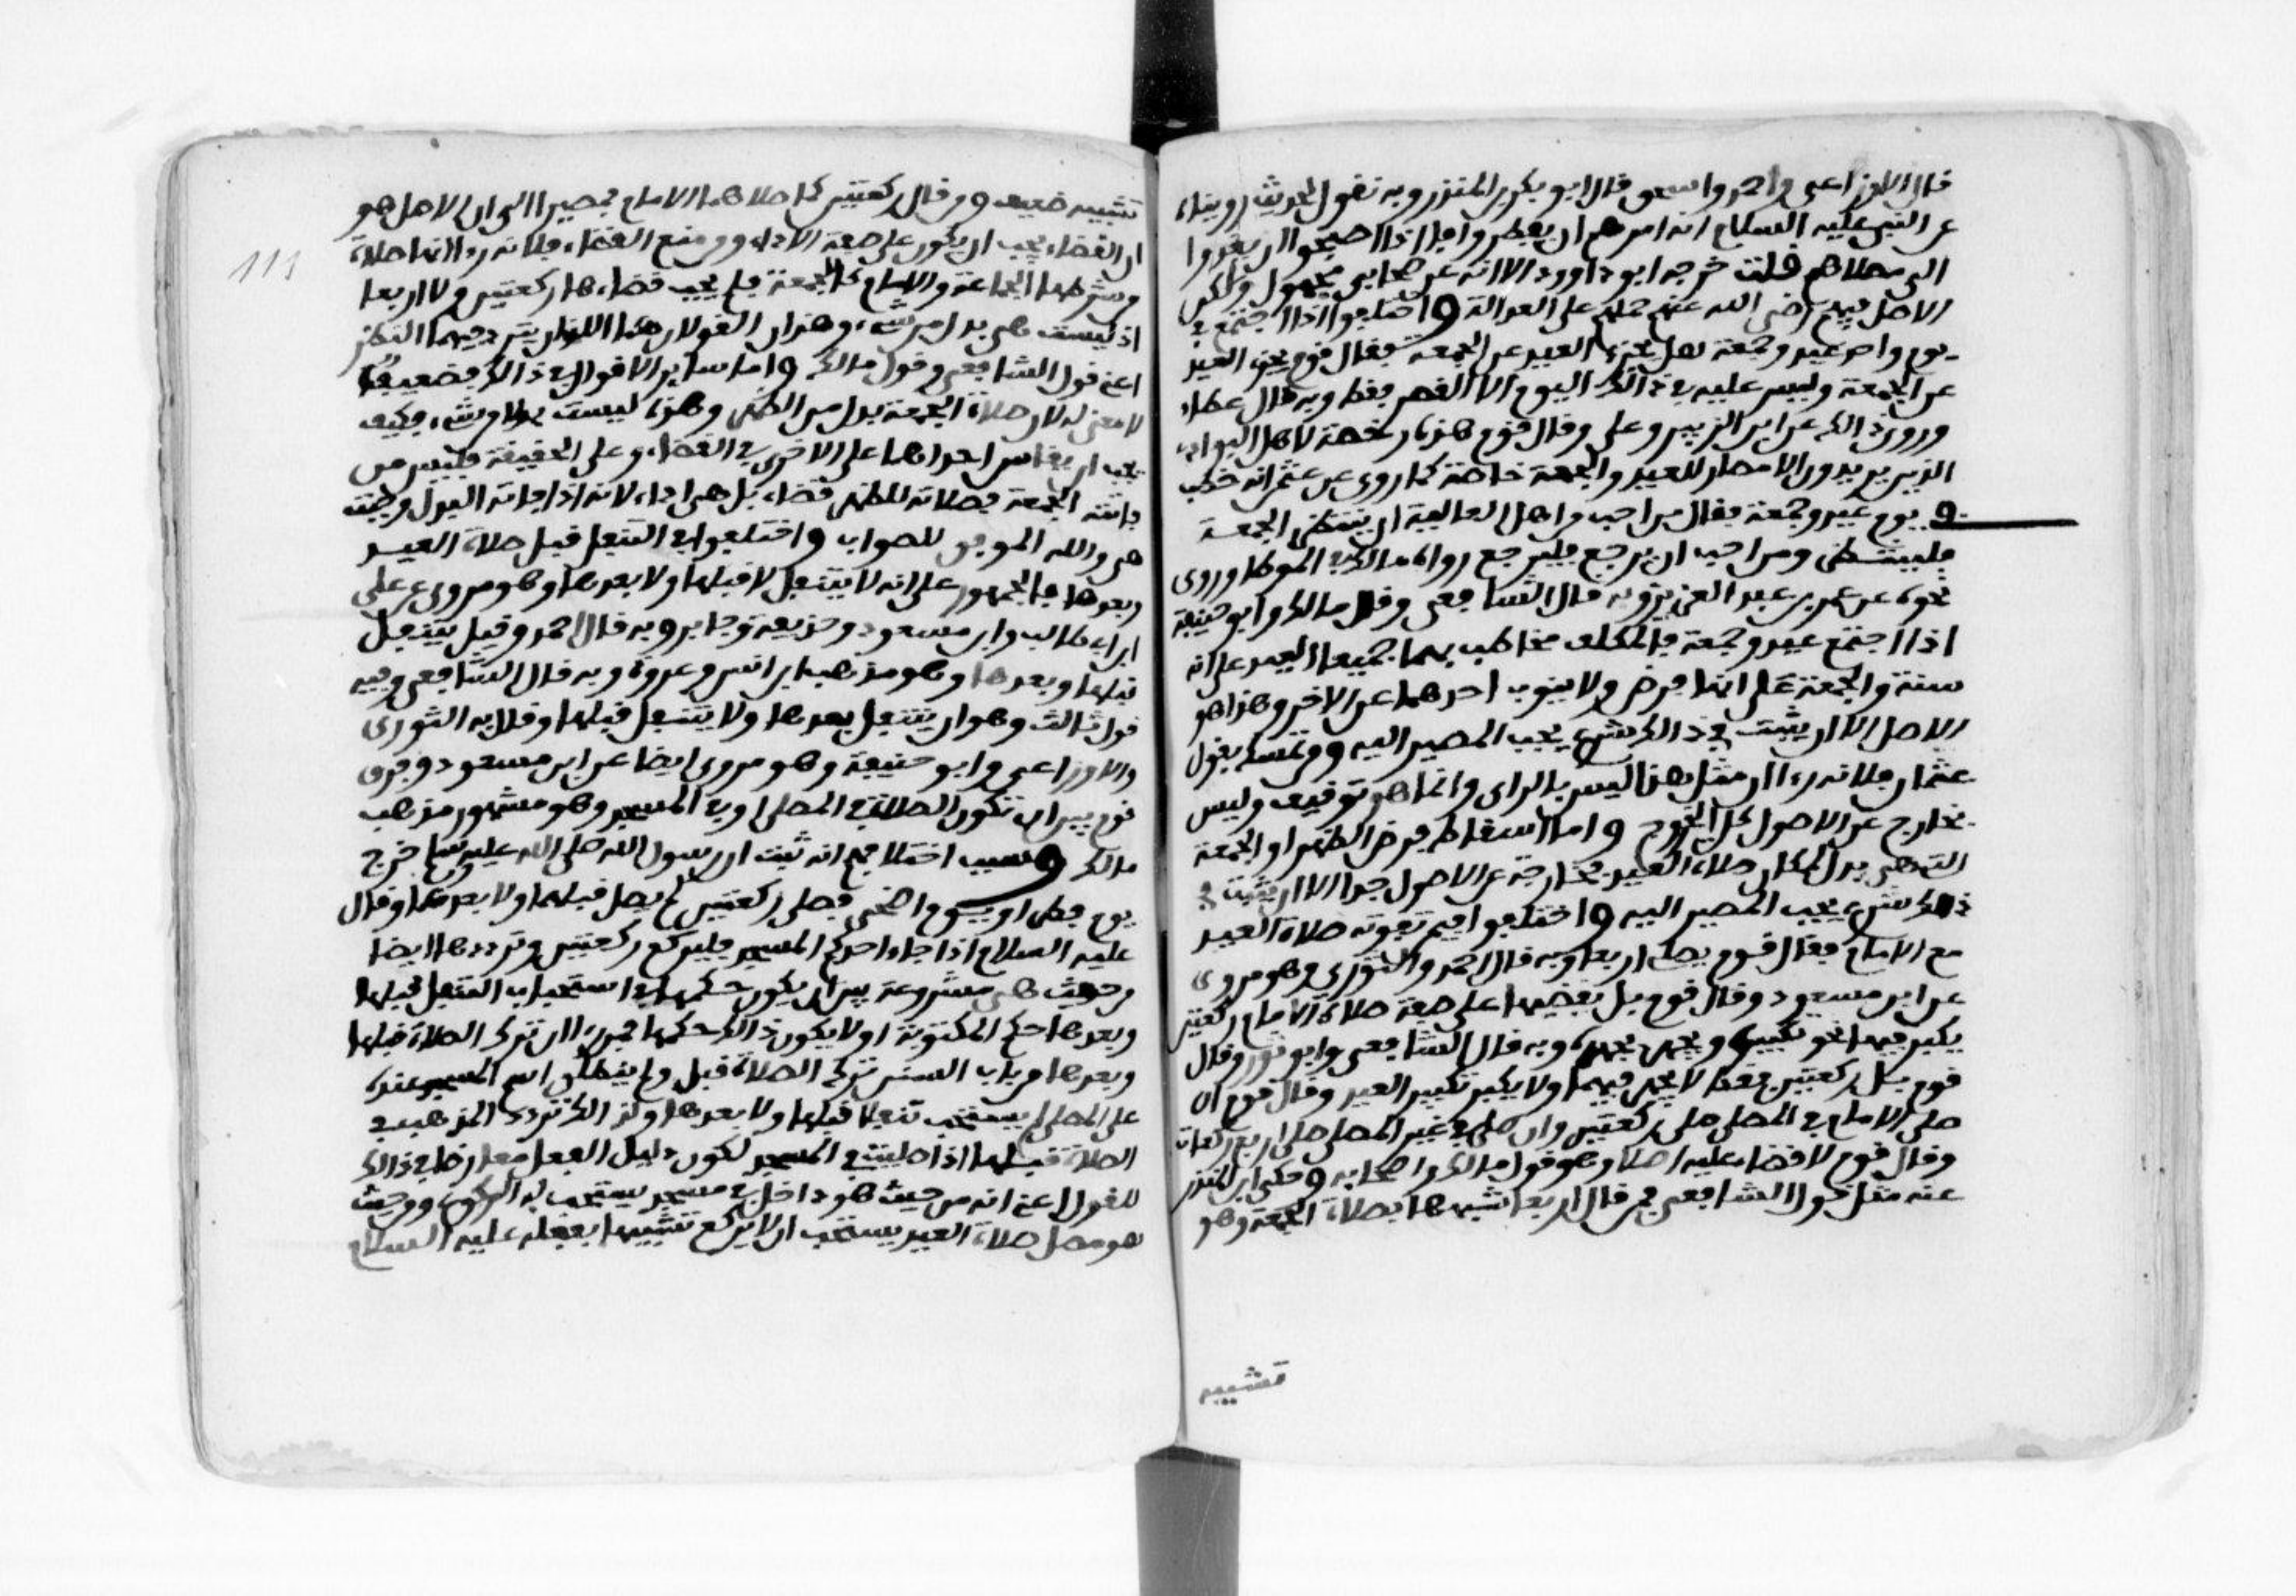 قال الاوزاعي واحمد واسحق قال ابو بكر بن المنذر وبه نقول لحديث رويناه
عن النبي عليه السلام انه امرهم ان يفطروا فاذا اصبحوا ان يغدوا
الى مصلاهم قلت خرجه ابو داوود الا انه عن صحابي مجهول ولكن
الاصل فيهم رضي الله عنهم حملهم على العدالة واختلفوا اذا اجتمع في
يوم واحد عيد وجمعة هل يجزئ العيد عن الجمعة فقال قوم يجزئ العيد
عن الجمعة وليس عليه في ذالك اليوم الا العصر فقط وبه قال عطاء
وروي ذالك عن ابن الزبير وعلي وقال قوم هذه رخصة لاهل البوادي
الذين يريدون الامصار للعيد والجمعة خاصة كما روي عن عثمن انه خطب
في يوم عيد وجمعة فقال من احب من اهل العالية ان ينتظر الجمعة
فلينتظر ومن احب ان يرجع فليرجع رواه مالك في الموطا وروى
نحوه عن عمر بن عبد العزيز وبه قال الشافعي وقال مالك وابو حنيفة
اذا اجتمع عيد وجمعة فالمكلف مخاطب بهما جميعا العيد على انه
سنة والجمعة على انها فرض ولا ينوب احدهما عن الاخر وهذا هو
الاصل الا ان يثبت في ذالك شيء يجب المصير اليه ومن تمسك بقول
عثمان فلانه راا ان مثل هذا ليس بالراي وانما هو توقيف وليس
بخارج عن الاصول كل الخروج واما اسقاط فرض الظهر او الجمعة
التي هي بدل لمكان صلاة العيد فخارجة عن الاصول جدا الا ان يثبت في
ذالك شيء يجب المصير اليه واختلفوا فيمن تفوته صلاة العيد
مع الامام فقال قوم يصلي اربعا وبه قال احمد والثوري وهو مروي
عن ابن مسعود وقال قوم بل يقضيها على صفة صلاة الامام ركعتين
يكبر فيهما نحو تكبيره ويجهر كجهره وبه قال الشافعي وابو ثور وقال
قوم بل ركعتين فقط لا يجهر فيهما ولا يكبر تكبير العيد وقال قوم ان
صلى الامام في المصلى صلى ركعتين وان صلى في غير المصلى صلى اربع ركعات
وقال قوم لا قضاء عليه اصلا وهو قول مالك واصحابه وحكى ابن المنذر
عنه مثل قول الشافعي فمن قال اربعا شبهها بصلاة الجمعة وهو
تشبيه
111
تشبيه ضعيف ومن قال ركعتين كما صلاهما الامام فمصيرا الى ان الاصل هو
ان القضاء يجب ان يكون على صفة الاداء ومن منع القضاء فلانه راا انها صلاة
من شرطها الجماعة والامام كالجمعة فلم يجب قضاءها ركعتين ولا اربعا
اذ ليست هي بدل من شيء وهذان القولان هما اللذان يتردد فيهما النظر
اعني قول الشافعي وقول مالك واما سائر الاقوال في ذالك فضعيف
لا معنى له لان صلاة الجمعة بدل من الظهر وهذه ليست بدلا من شيء فكيف
يجب ان يقاس احداهما على الاخرى في القضاء وعلى الحقيقة فليس من
فاتته الجمعة فصلاته للظهر قضاء بل هي اداء لانه اذا فاته البدل وجبت
هي والله الموفق للصواب واختلفوا في التنفل قبل صلاة العيد
وبعدها فالجمهور على انه لا يتنفل لا قبلها ولا بعدها وهو مروي عن علي
ابن ابي طالب وابن مسعود وحذيفة وجابر وبه قال احمد وقيل يتنفل
قبلها وبعدها وهو مذهب انس وعروة وبه قال الشافعي وفيه
قول ثالث وهو ان يتنفل بعدها ولا يتنفل قبلها وقال به الثوري
والاوزاعي وابو حنيفة وهو مروي ايضا عن ابن مسعود وفرق
قوم بين ان تكون الصلاة في المصلى او في المسجد وهو مشهور مذهب
مالك وسبب اختلافهم انه ثبت ان رسول الله صلى الله عليه وسلم خرج
يوم فطر او يوم اضحى فصلى ركعتين لم يصل قبلهما ولا بعدهما وقال
عليه السلام اذا جاء احدكم المسجد فليركع ركعتين وترددها ايضا
من حيث هي مشروعة بين ان يكون حكمها في استحباب التنفل قبلها
وبعدها حكم المكتوبة او لا يكون ذالك حكمها فمن راا ان تركه الصلاة قبلها
وبعدها من باب السنن تركه الصلاة قبل ولم ينطلق اسم المسجد عنده
على المصلى لم يستحب تنفلا قبلها ولا بعدها ولذالك تردد المذهب في
الصلاة قبلها اذا صليت في المسجد لكون دليل الفعل معارضا في ذالك
للقول اعني انه من حيث هو داخل في مسجد يستحب له الركوع ومن حيث
هو مصل صلاة العيد يستحب ان لا يركع تشبيها بفعله عليه السلام